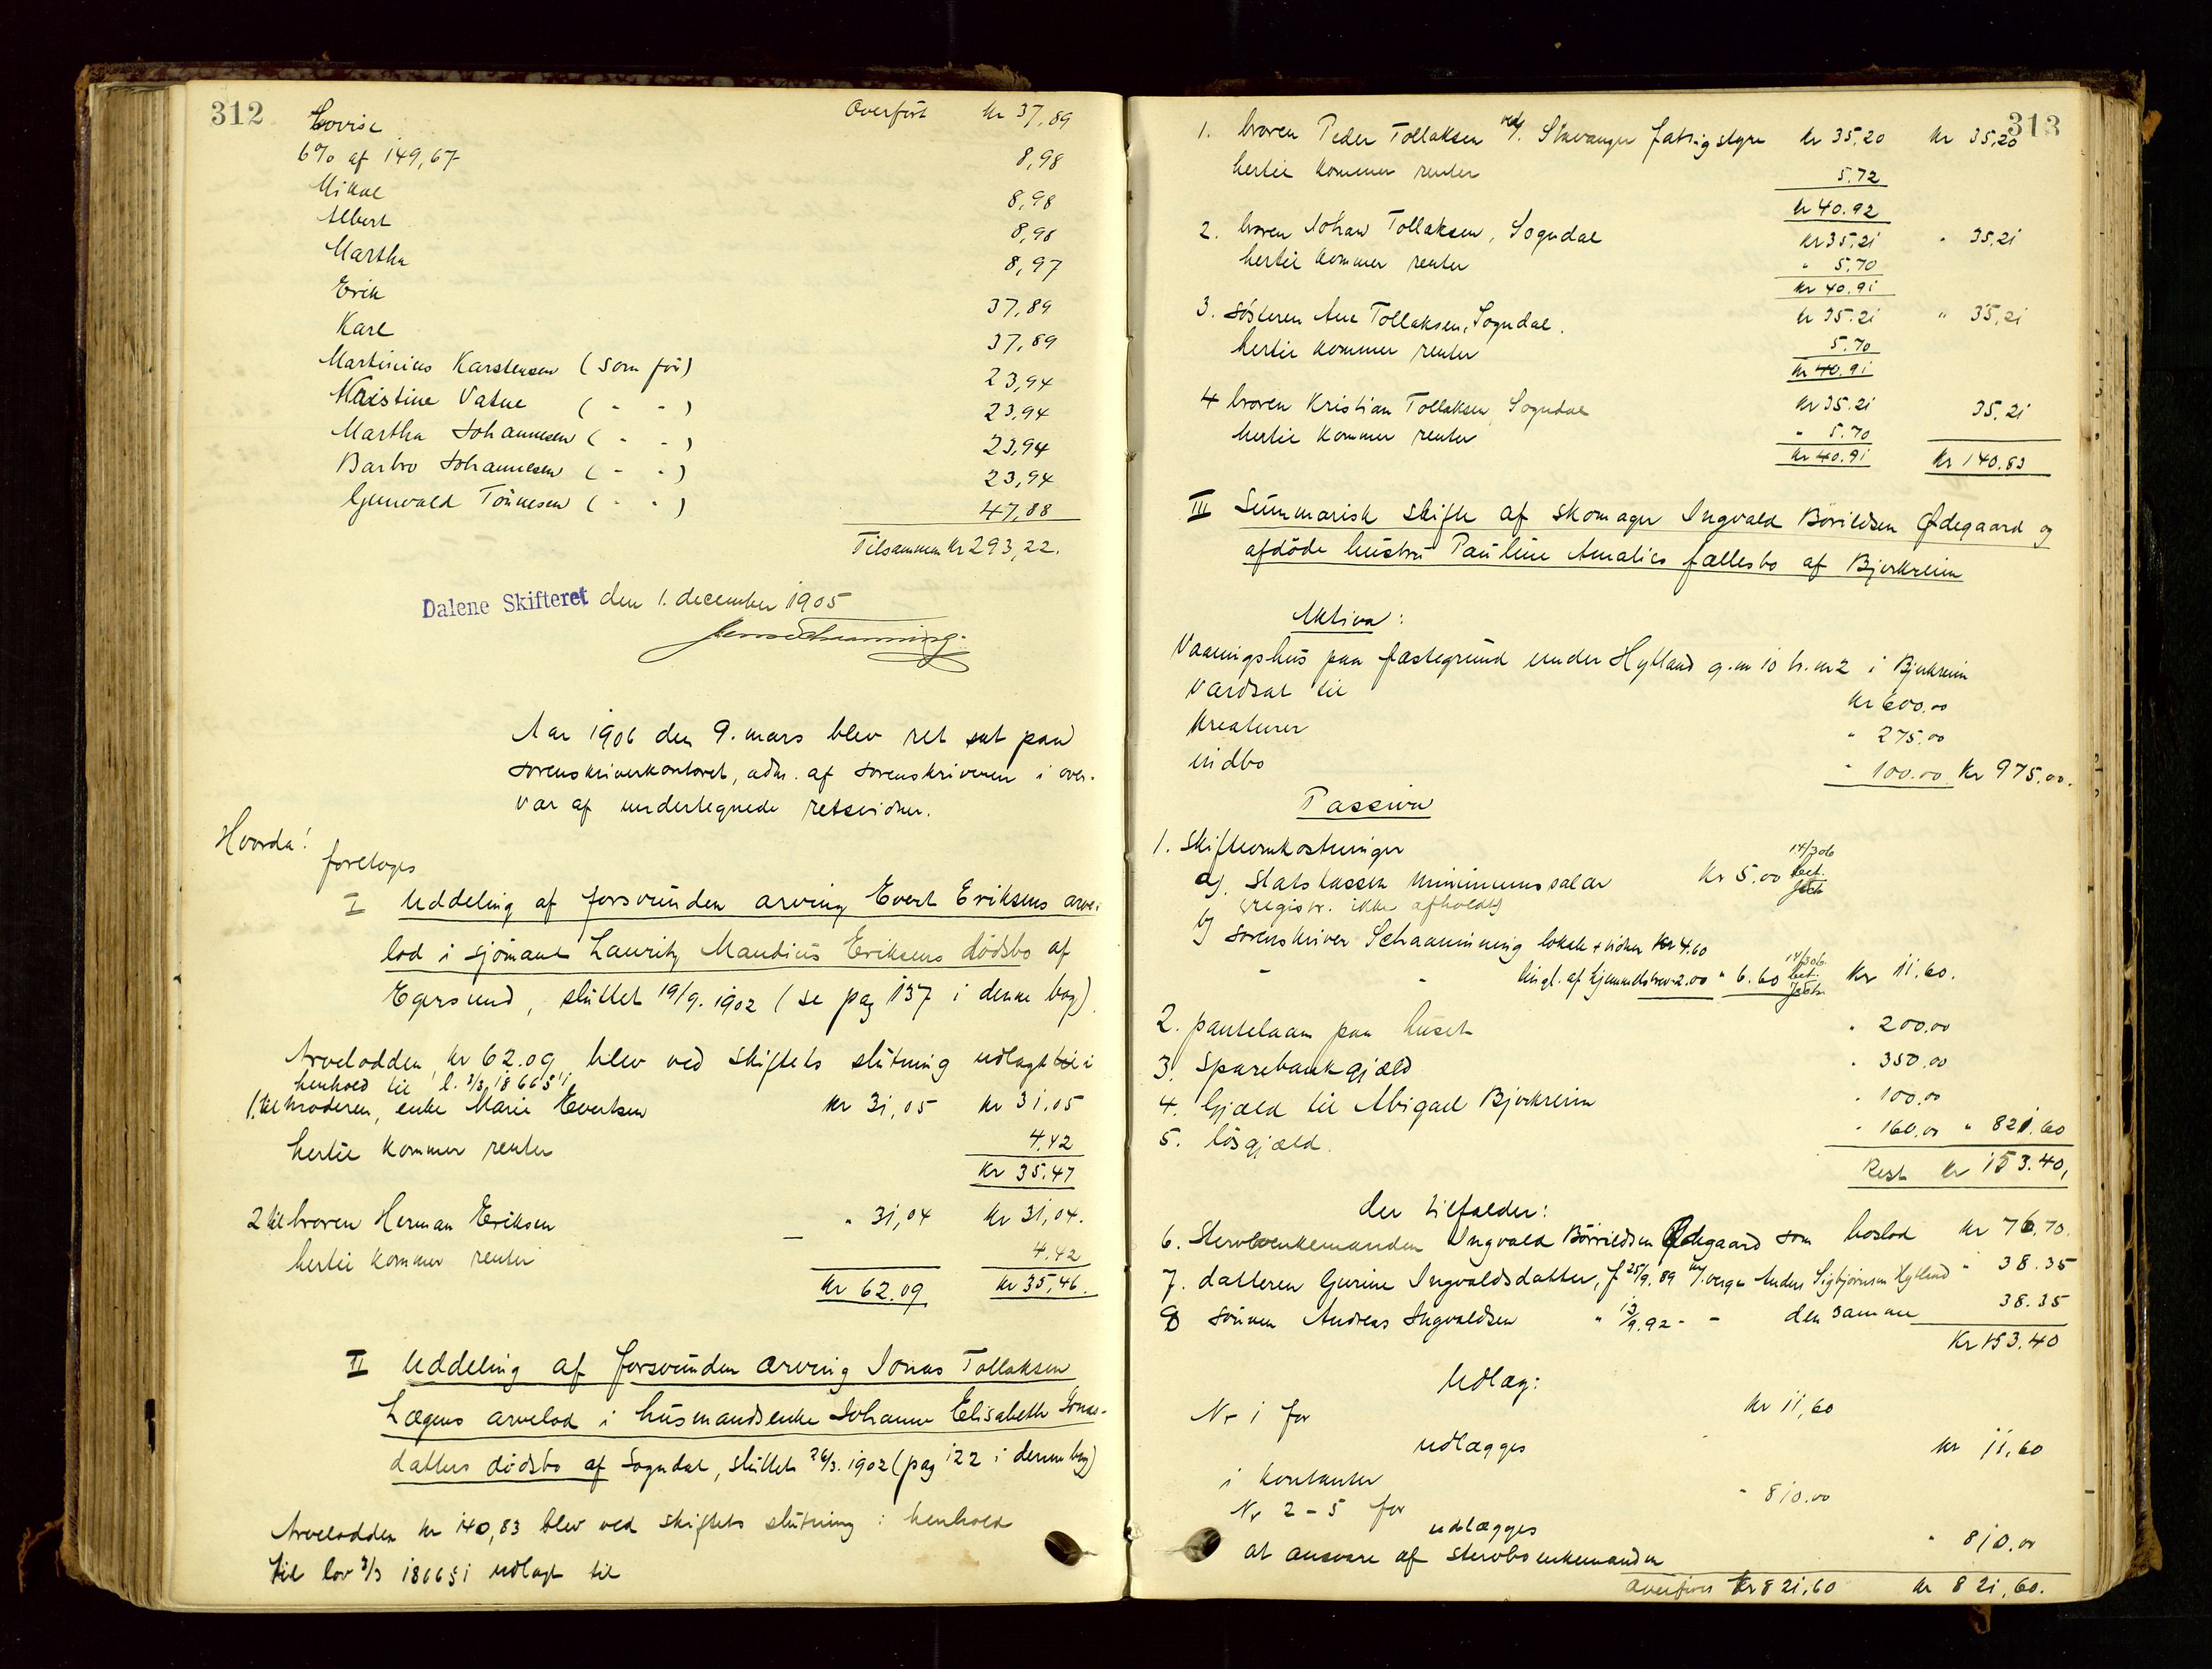 312
Overført Kr 37,89
Lovise
6% af 149,67 8,98
Mikal 8,98
Albert 8,98
Martha 8,97
Erik 37,89
Karl 37,89
Martinius Karstensen (som før) 23,94
Kristine Vatne ( " " ) 23,94
Martha Johannesen ( " " ) 23,94
Barbro Johannesen ( " " ) 23,94
Gunvald Tönnesen ( " " ) 47,88
Tilsammen Kr 293,22.
Dalene Skifteret den 1. december 1905
Aar 1906 den 9. mars blev ret sat paa
sorenskriverkontoret, adm. af sorenskriveren i over-
vær af undertegnede retsvidner.
Hvorda!
foretoges
I Uddeling af forsvunden arving Evert Eriksens arve-
lod i sjømand Lauritz Maudius Eriksens dødsbo af
Egersund, sluttet 19/9. 1902 (se pag 137 i denne bog).
Arvelodden, kr 62.09 blev ved skiftets slutning udlagt i
henhold til l. 3/3 1866 § 1
1. til moderen, enke Marie Evertsen kr 31,05 kr 31.05
hertil kommer renter 4.42
Kr 35.47
2 til broren Herman Eriksen " 31,04 Kr 31,04.
hertil kommer renter 4.42
Kr 62.09 Kr 35,46.
II Uddeling af forsvunden arving Jonas Tollaksen
Lægens arvelod i husmandsenke Johanne Elisabeth Jonas-
datters dødsbo af Sogndal, sluttet 26/3. 1902 (pag 122 i denne bog)
Arvelodden kr 140,83 blev ved skiftets slutning i henhold
til lov 3/3 1866 § 1 udlagt til
313
1. broren Peder Tollaksen ved/ Stavanger fattigstyre Kr 35,20 Kr 35,20
hertil kommer renter 5.72
Kr 40.92
2. broren Johan Tollaksen, Sogndal Kr 35,21 " 35,21
hertil kommer renter " 5.70
Kr 40.91
3. søsteren Ane Tollaksen, Sogndal. Kr 35.21 " 35,21
hertil kommer renter 5.70
Kr 40.91
4 broren Kristian Tollaksen, Sogndal Kr 35.21 35.21
hertil kommer renter " 5.70
Kr 40.91 Kr 140.83
III Summarisk skifte af skomager Ingvald Børildsen Ødegaard og
afdøde hustru Pauline Amalies fællesbo af Bjerkreim
Aktiva:
Vaaningshus paa fæstegrund under Hylland g.m 10 br.m 2 i Bjerkreim
værdsat til Kr 600.00
Kreaturer " 275.00
indbo " 100.00 Kr 975.00.
Passiva
1. Skifteomkostninger
a). Statskassen minimumssalær Kr 5.00 14/3 06 bet.
(registr. ikke afholdt)
b) sorenskriver Schanning lokale + vidner Kr 4.60
" " tingl. af hjemmelsbrev 2.00 " 6.60 14/3 06. bet. Kr 11.60.
2. pantelaan paa huset " 200.00
3. Sparebankgjæld " 350.00
4. Gjæld til Abigael Bjerkreim " 100.00
5. løsgjæld. " 160.00 " 821.60
Rest Kr 153.40,
der tilfalder:
6. Stervboenkemanden Ingvald Børrildsen Ødegaard som boslod Kr 76.70.
7. datteren Gurine Ingvaldsdatter, f 25/9. 89 ved/ verge Anders Sigbjørnsen Hylland " 38.35
8 sønnen Andreas Ingvaldsen " 13/9. 92 - - den samme 38.35
Kr 153.40
Udlæg:
Nr 1 for Kr 11,60
udlægges
i kontanter Kr 11,60
Nr 2 – 5 for " 810.00
udlægges
at ansvare af stervboenkemanden " 810.00
Overføres Kr 821,60 Kr 821,60.